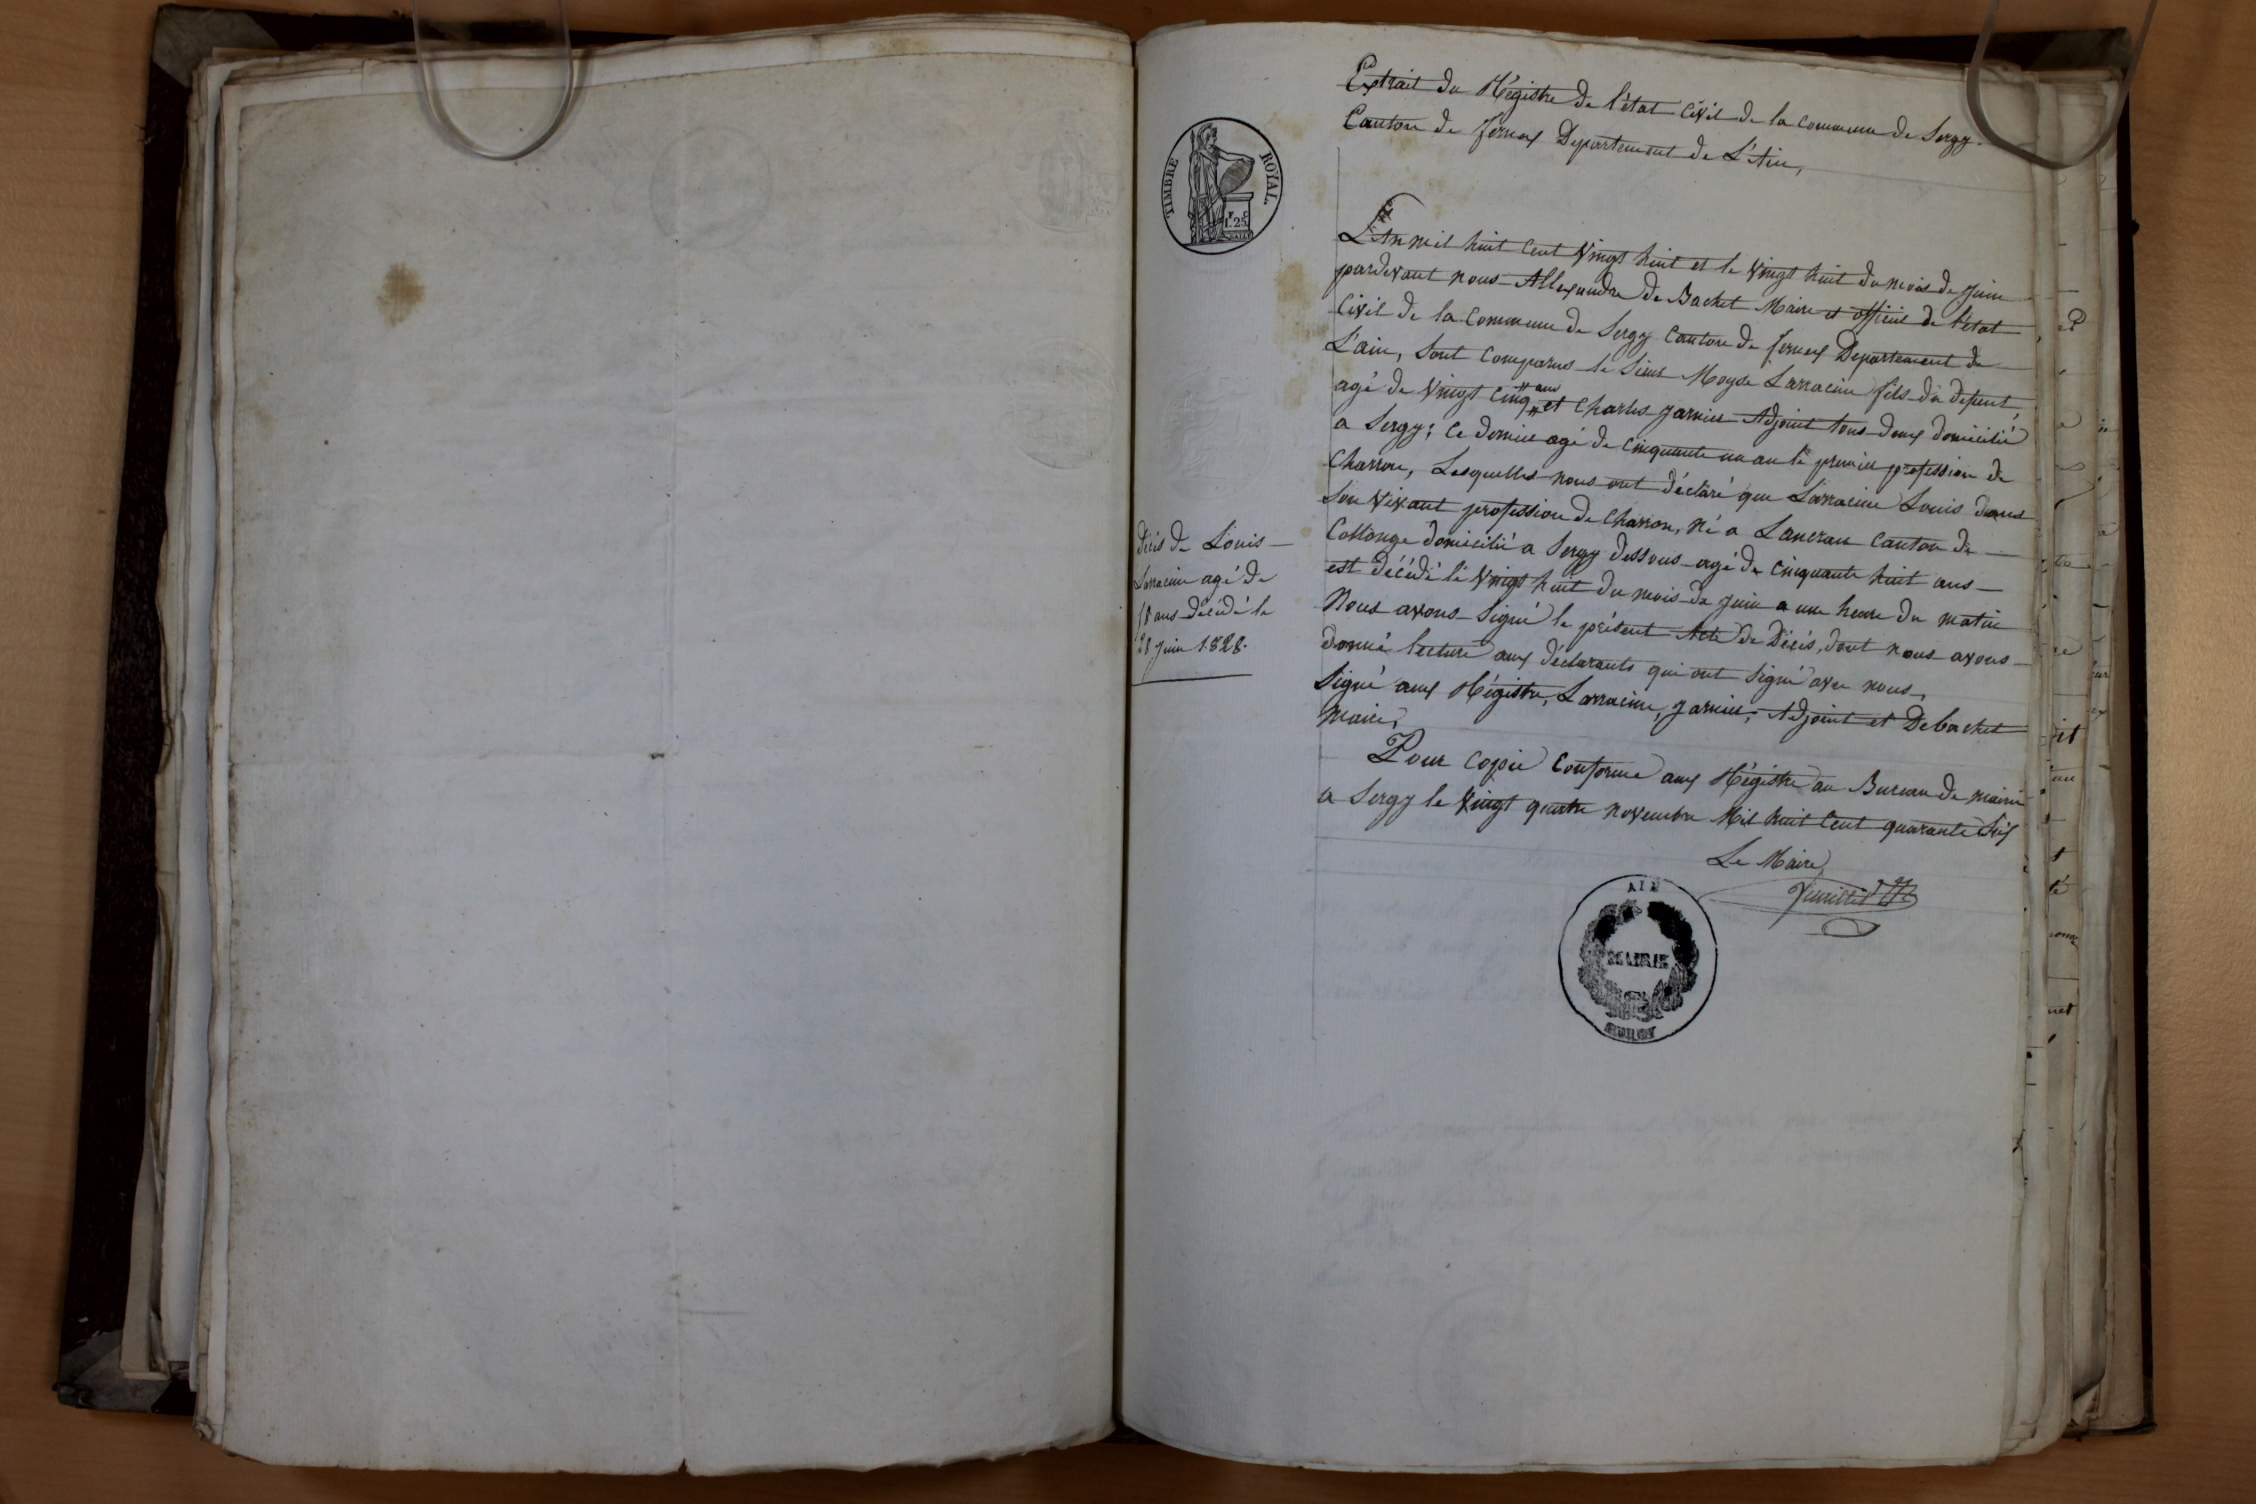 Extrait du Régistre de l'état Civil de la Commune de Sergy
Canton de fernex Departement de L'Ain,
TIMBRE ROYAL.
1.F 25C
L'An mil huit Cent Vingt huit et le Vingt huit du mois de Juin
pardevant nous Allexandre de Backet Maire et officié de l'état
Civil de la Commune de Sergy Canton de fernex Departement de
L'ain, Sont Comparus le Sieur Moyse Larracine fils du defunt,
agé de Vingt Cinq ans et Charles Jarnier Adjoint tous deux domicilié
a Sergy; Ce dernier agé de Cinquante un an le premier profession de
Charron, Lesquelles nous ont déclaré que Larracine Louis dans
Son Vivant profession de Charron, Né a Lancran Canton de
Collonge domicilié a Sergy dessous agé de Cinquante huit ans
est décédé le Vingt huit du mois de Juin a une heure du matin
Nous avons Signé le présent Acte de Décés, dont nous avons
donné lecture aux déclarants qui ont Signé avec nous,
Signé aux Régistre, Larracine, Jarnier, Adjoint et Debacket
Maire,
décés de Louis
Larracine agé de
58 ans décédé le
28 Juin 1828.
Pour Copie Conforme aux Régistre au Bureau de mairie
a Sergy le Vingt quatre Novembre Mil huit Cent quarante Six
Le Maire
AIN
MAIRIE